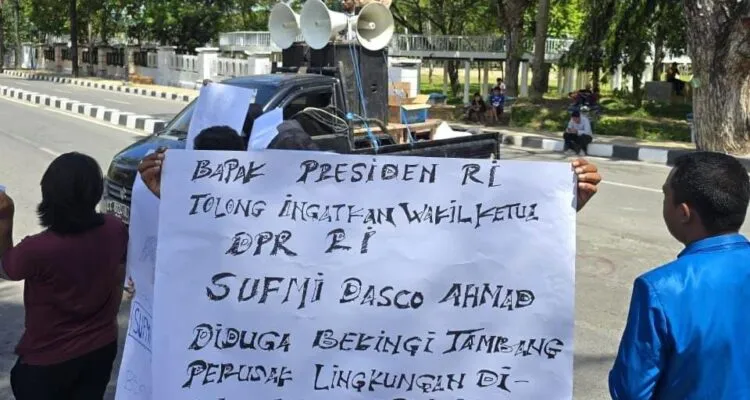 BAPAK PRESIDEN RI
TOLONG INGATKAN WAKIL KETUA
DPR RI
SUFMI DASCO AHMAD
DIDUGA BEKINGI TAMBANG
PERUSAK LINGKUNGAN DI-
SUFMI